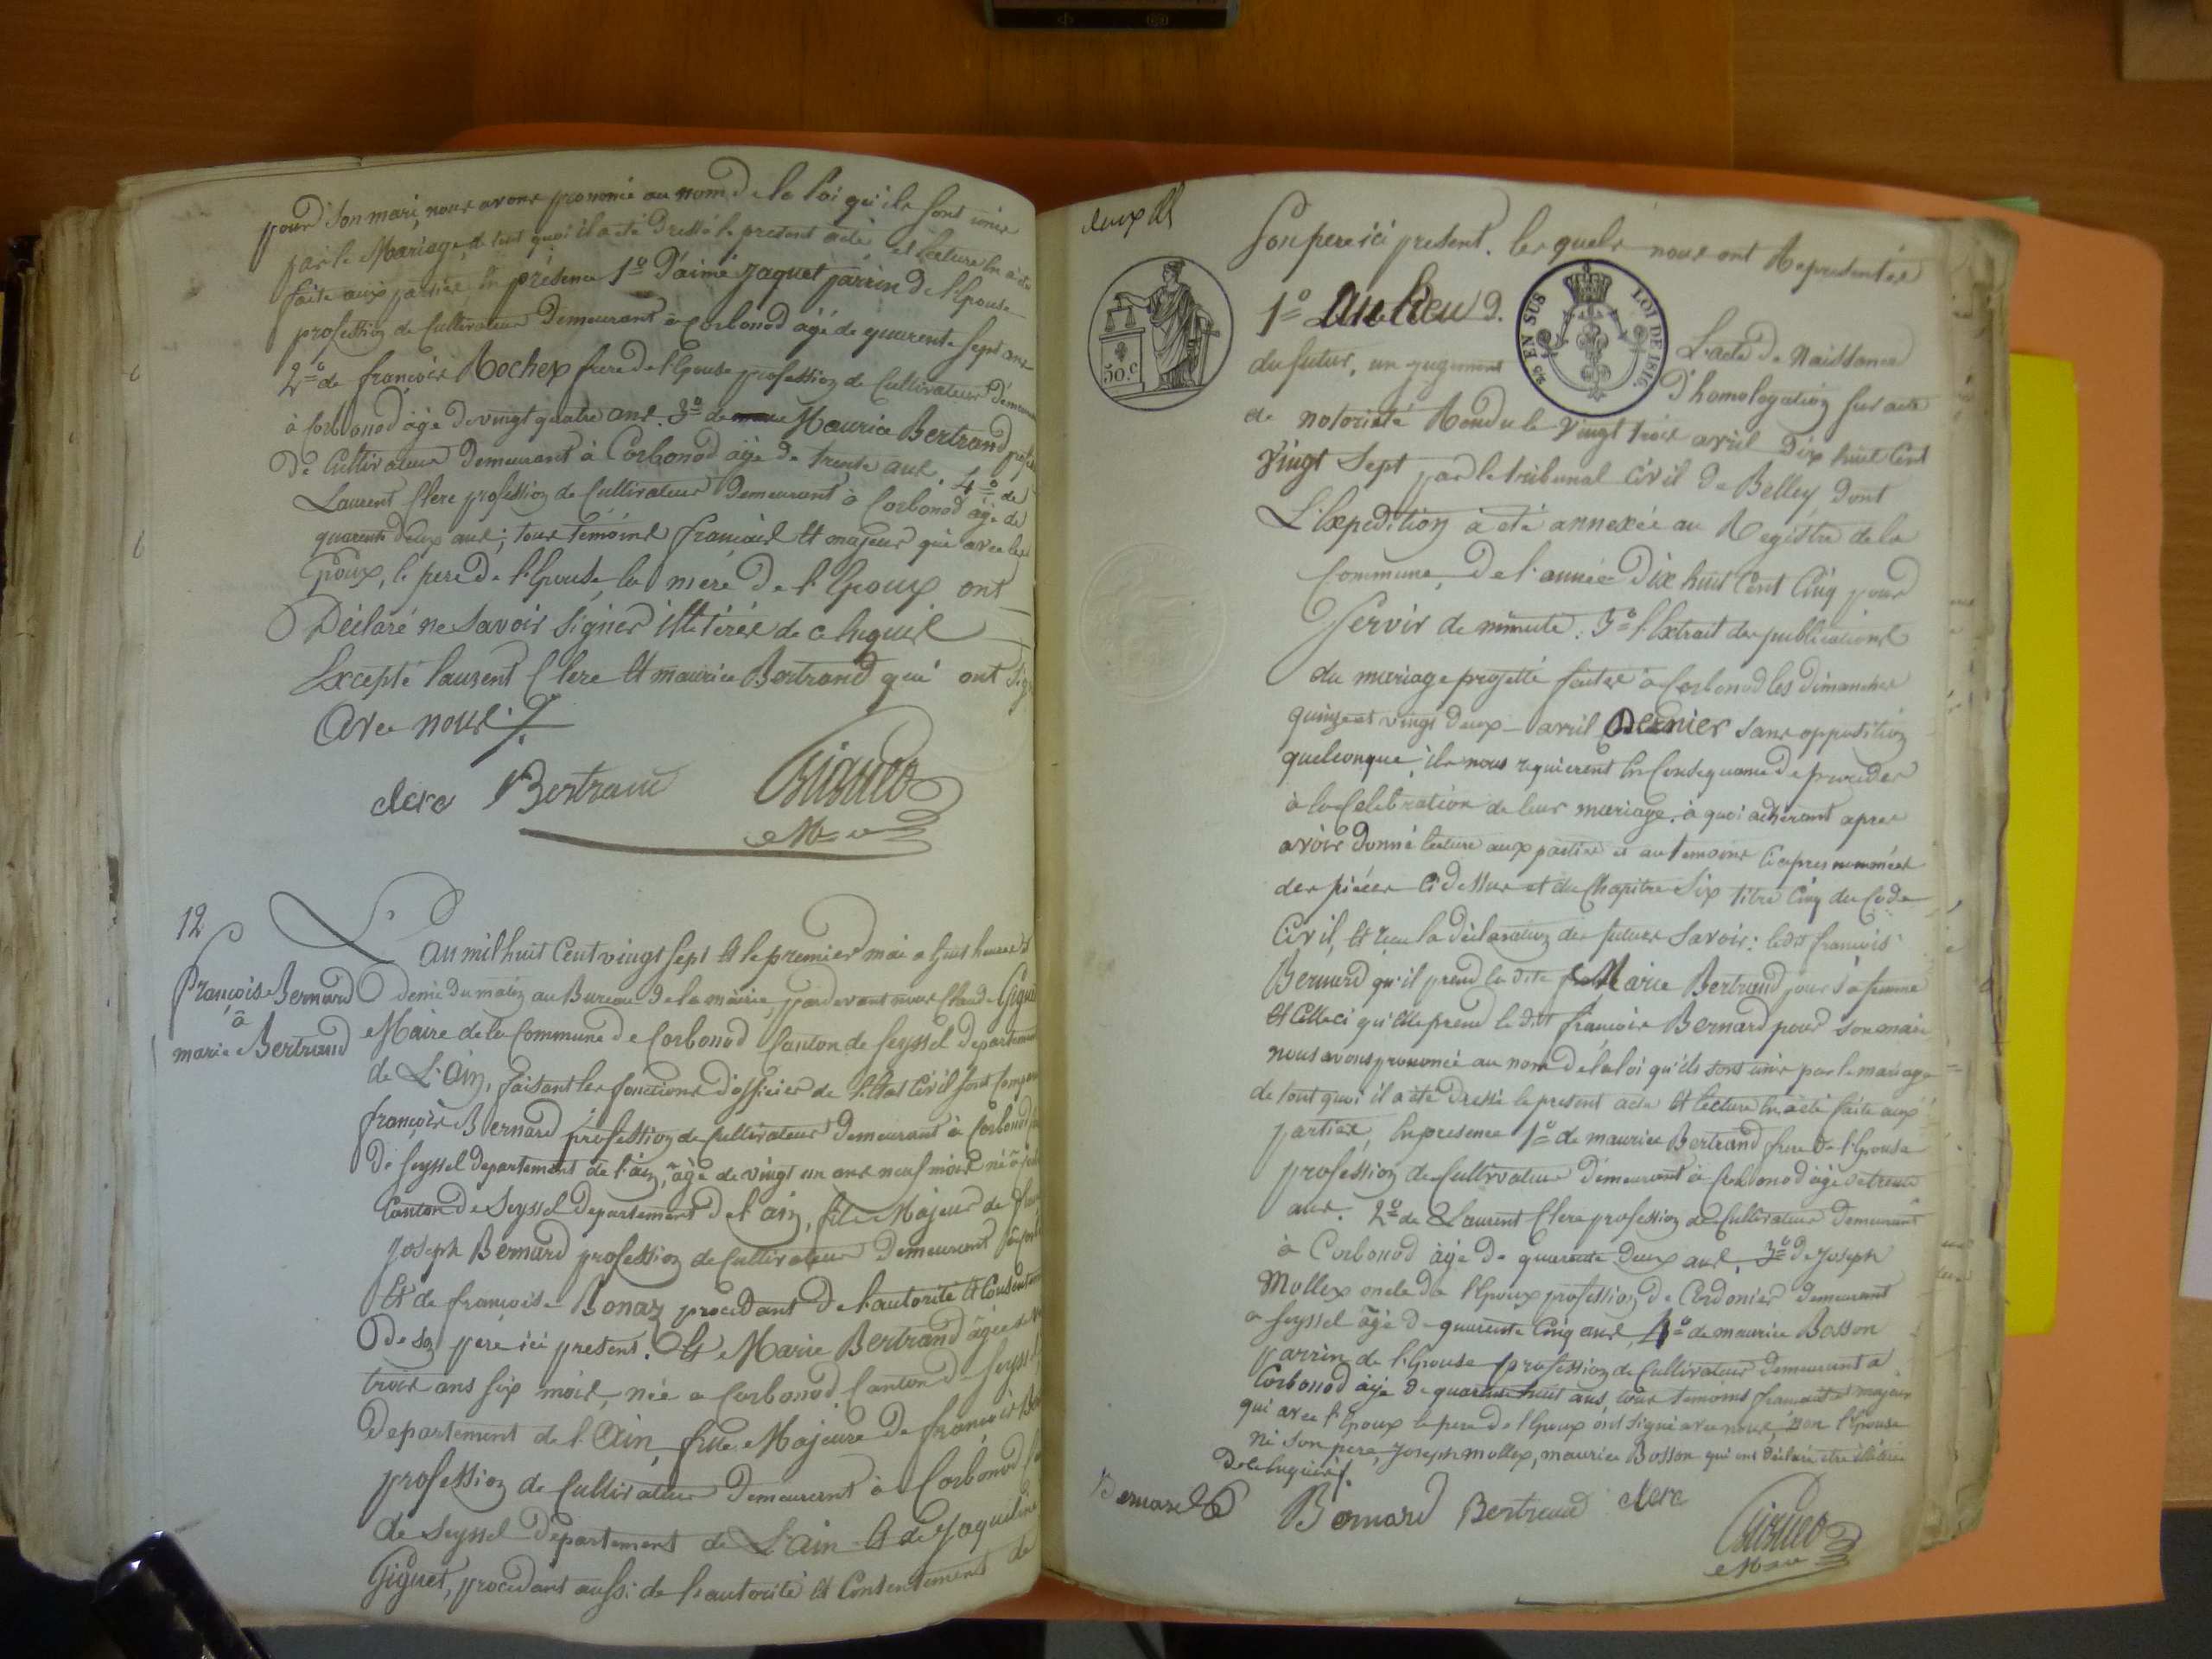 pour son mari, nous avons prononcé au nom de la loi qu'ils sont unis
par le Mariage, de tout quoi il a été dressé le present acte, et lecture en a été
faite aux parties, en présence 1º D'aimé Jaquet parrin de l'Epouse
profession de Cultivateur Demeurant à Corbonod âgé de quarente sept ans
2º de françois Rochex frere de l'Epouse profession de Cultivateur
à Corbonod âgé de vingt quatre ans. 3º de Maurice Bertrand
De Cultivateur Demeurant à Corbonod âgé de trente ans. 4º de
Laurent Clere profession de Cultivateur Demeurant à Corbonod âgé de
quarente deux ans; tous témoins français et majeurs qui avec les
Epoux, le pere de l'Epouse, la mere de l'Epoux ont
Déclaré ne savoir signer illitérés de ce enquis
Excepté laurent Clere et maurice Bertrand qui ont
avec nous ./.
clere Bertrand Giguet
Mre
12
françois Bernard
à
marie Bertrand
L'an mil huit Cent vingt sept et le premier mai a huit heures et
demie du matin au Bureau de la mairie, pardevant nous Claude
Maire de la Commune de Corbonod Canton de Seyssel
de L'Ain, faisant les fonctions d'officier de l'Etat Civil sont
françois Bernard profession de Cultivateur demeurant à Corbonod
de Seyssel departement de l'ain, âgé de vingt un ans neuf mois né à
Canton de Seyssel Departement de l'ain, fils Majeur de
Joseph Bernard profession de Cultivateur demeurant
Et de françoise Bonaz procedant de l'autorité et
De son père ici présent. Et Marie Bertrand âgée de
trois ans six mois, née a Corbonod Canton de Seyssel
Departement de l'Ain, fille Majeure de françois
profession de Cultivateur Demeurant à Corbonod
de Seyssel Departement de L'Ain et de Jaqueline
Giguet, procedant aussi de l'autorité et Consentement de
son pere ici present. les quels nous ont Representés
50.c
25 EN SUS
LOI DE 1816.
1º Au lieu d. L'acte de Naissance
du futur, un jugement D'homologation sur acte
de notoriété Rendu le vingt trois avril Dix huit Cent
Vingt Sept par le tribunal Civil de Belley dont
L'Expédition à été annexée au Registre de la
Commune, De l'année Dix huit Cent Cinq pour
Servir de minute. 3º l'Extrait des publications
du mariage projetté faites à Corbonod les dimanches
quinze et vingt deux avril Dernier sans opposition
quelconque; ils nous requierent en Consequance de proceder
à la Celebration de leur mariage. à quoi adherant apres
avoir donné lecture aux parties et au temoins Ciapres nommées
des pièces Ci dessus et du Chapitre Six titre Cinq du Code
Civil, Et reçu la déclaration des futurs savoir: ledit françois
Bernard qu'il prend la dite Marie Bertrand pour sa femme
Et Celleci qu'elle prend le dit françois Bernard pour son mari
nous avons prononcé au nom de la loi qu'ils sont unis par le mariage
de tout quoi il a été dressé le present acte et lecture en a été faite aux
parties, en presence 1º de maurice Bertrand frere de l'Epouse
profession de Cultivateur Demeurant à Corbonod âgé de trente
ans. 2º de Laurent Clere profession de Cultivateur Demeurant
à Corbonod âgé de quarente Deux ans, 3º de Joseph
Mollex oncle de l'Epoux profession de Cordonier Demeurant
a Seyssel âgé de quarente Cinq ans, 4º de maurice Bosson
parrin de l'Epouse profession de Cultivateur Demeurant a
Corbonod âgé de quarente huit ans, tous temoins français et majeurs
qui avec l'Epoux le pere de l'Epoux ont signé avec nous, non l'Epouse
ni son pere, Joseph mollex, maurice Bosson qui ont déclaré etre illiteré
De ce enquis ./.
Bernard Bernard Bertrand clere
Giguet
Mre